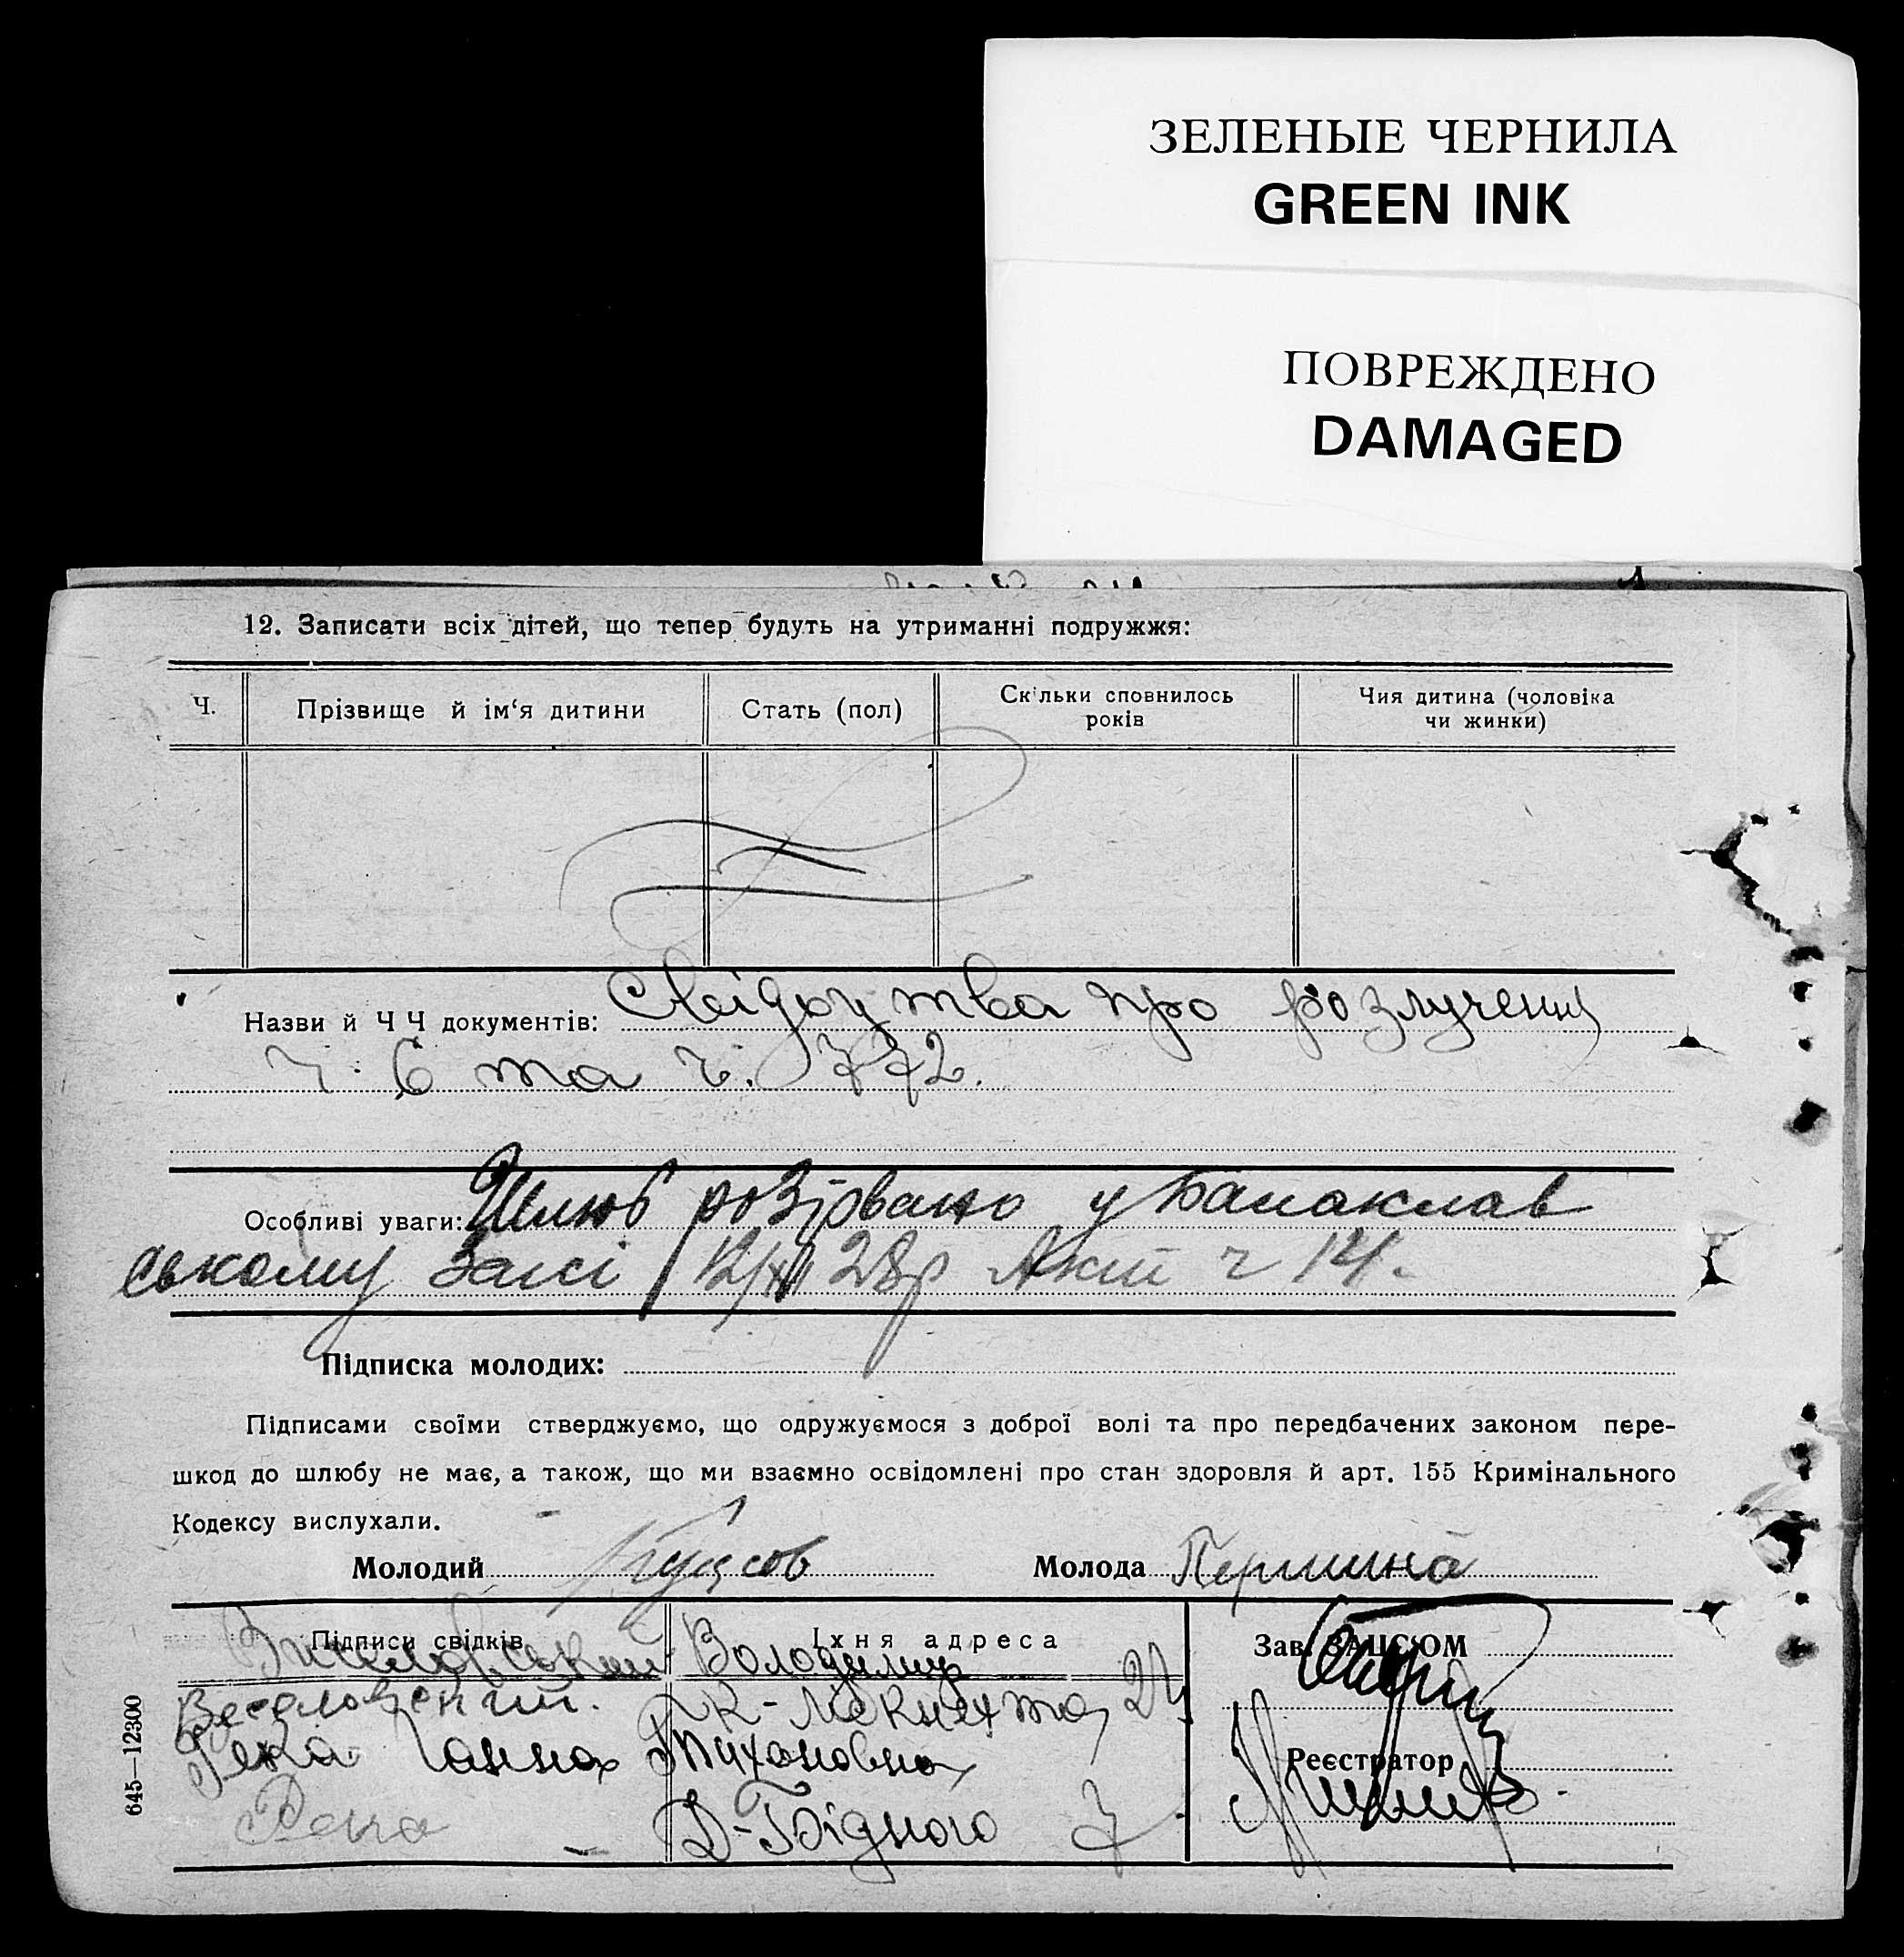 ЗЕЛЕНЫЕ ЧЕРНИЛА
GREEN INK
ПОВРЕЖДЕНО
DAMAGED
12. Записати всіх дітей, що тепер будуть на утриманні подружжя:
Ч.
Прізвище й ім‘я дитини
Стать (пол)
Скільки сповнилось
років
Чия дитина (чоловіка
чи жинки)
Назви й Ч Ч документів: Свідоцтва про розлучення
ч. 6 та ч. 772.
Особливі уваги: Шлюб розірвано у Балаклав
ському Загсі 12/XII 28р Акт ч 14.
Підписка молодих:
Підписами своїми стверджуємо, що одружуємося з доброї волі та про передбачених законом пере-
шкод до шлюбу не має, а також, що ми взаємно освідомлені про стан здоровля й арт. 155 Кримінального
Кодексу вислухали.
Молодий
Молода Першина
Підписи свідків
Їхня адреса
Зав. ЗАЦС'ОМ
Володимир
Веселовский. К-Лібкнехта, 24
Река Ганна Тихоновна
Реєстратор
Река – Д-Бідного 7
645—12300